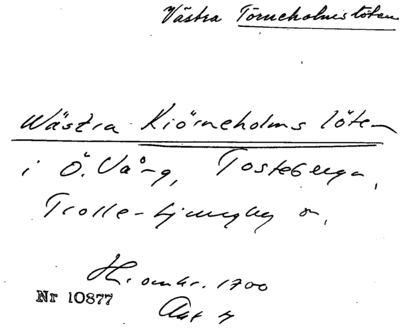 Västra Törneholms löten
Wästra Kiörneholms löten
i Ö. Vång, Tosteberga,
Trolle-Ljungby sn.
H. omkr. 1700
Nr 10877
Akt 4